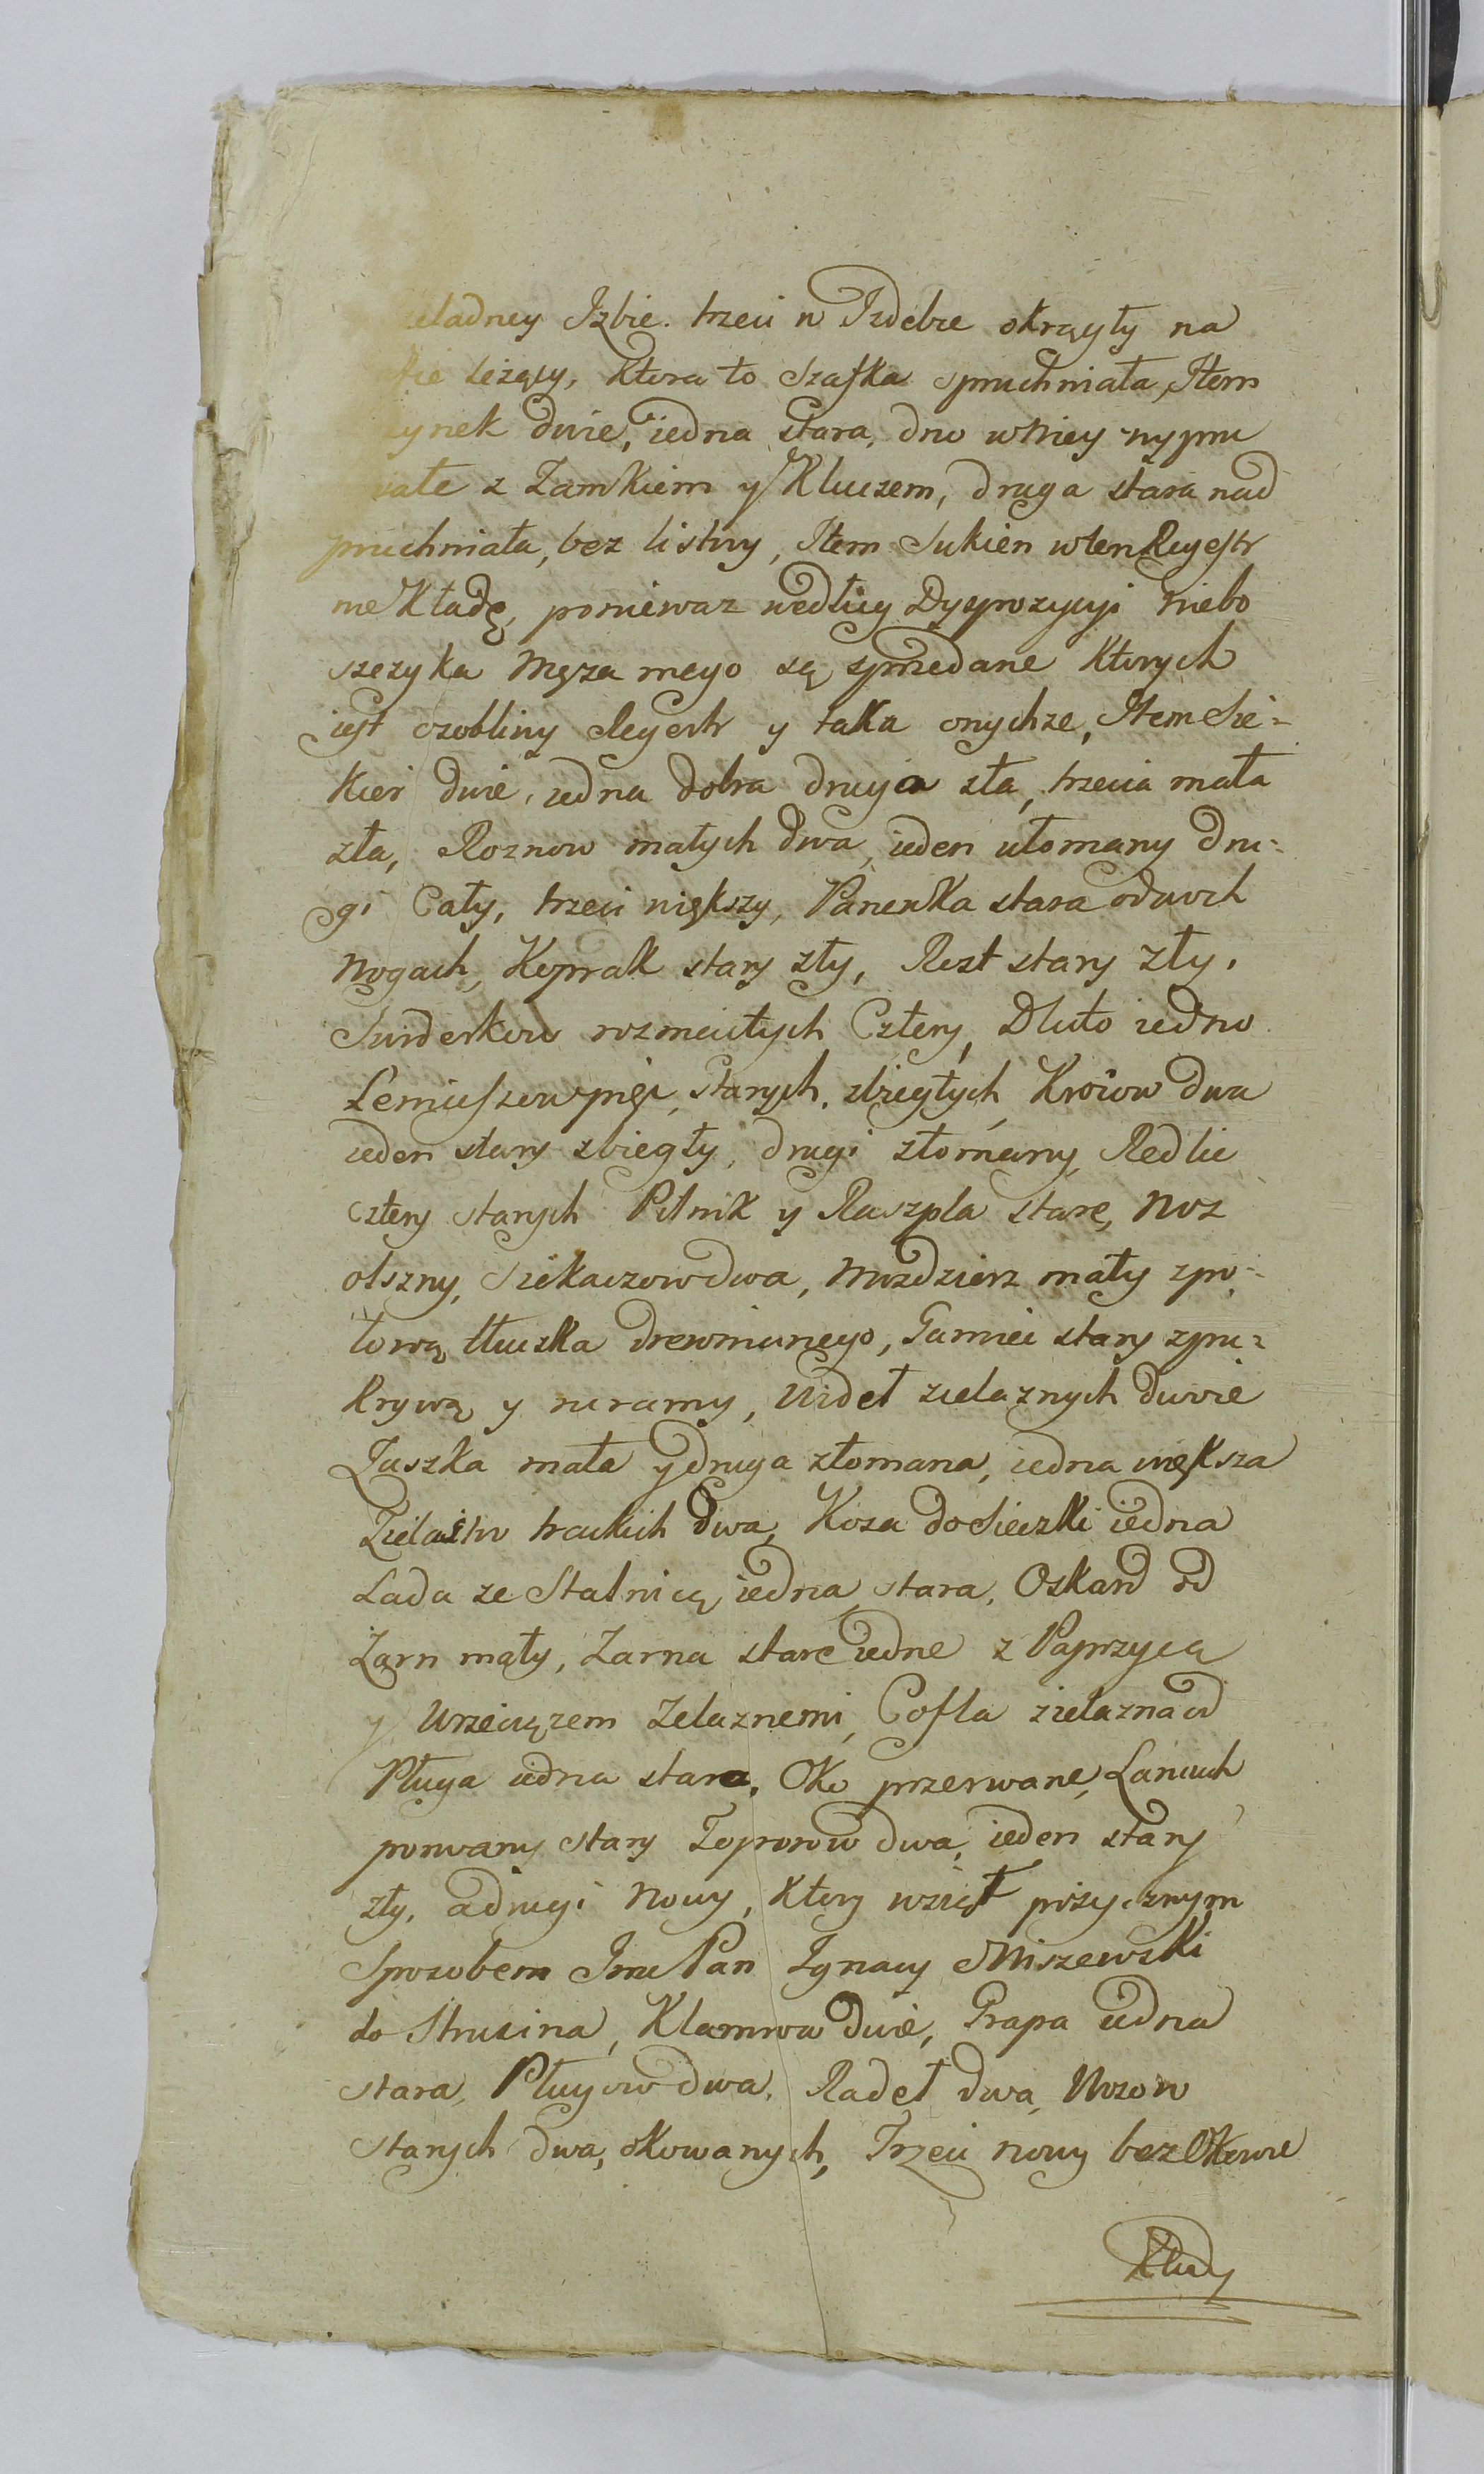 eladney Izbie. trzeci w Izdebce okrągły na
fie leżący, ktora to Szafka spruchniała, Item
zynek dwie, iedna stara, dno w niey wypru
iałe z Zamkiem y Kluczem, druga stara nad
pruchniała, bez listwy, Item Sukien w ten Regestr
nie Kładę, poniewaz według Dyspozycyi niebo
szczyka Męza mego są sprzedane Ktorych
iest osobliwy Regestr y taxa onychze, Item Sie=
kier dwie, iedna dobra druga zła, trzecia mała
zła, Roznow małych dwa, ieden ułomany dru=
gi Cały, trzeci większy, Panewka stara o dwoch
Nogach, Koprak stary zły, Rost stary zły,
Swiderkow rozmaitych Cztery, Dluto iedno
Lemieszow pięc, starych, zbiegłych, Kroiow dwa
ieden stary zbiegły, drugi złomany, Redlic
cztery starych Pilnik y Raszpla stare, Noz
olszny, Siekaczow dwa, Mozdzierz mały z po=
łową tłuczka drewnianego, Garniec stary z po=
krywą y ruramy, Wideł zielaznych dwie
Łuszka mała y druga złomana, iedna większa
Zielaztw trackich dwa, Kosa do Sieczki iedna
Lada ze Stalnicą iedna stara, Oskard od
Zarn mały, Zarna stare iedne z Paprzycą
y Wrzeciązem Zelaznemi, Cofla zielazna od
Pługa iedna stara. Oko przerwane, Łancuch
porwany stary Toporow dwa, ieden stary
zły, a drugi Nowy, Ktory wziął pożycznym
Sposobem Jmc Pan Ignacy Miszewski
do Strusina, Klamrow dwie, Grapa iedna
stara, Pługow dwa, Radeł dwa, Wozow
starych dwa, okowanych, Trzeci nowy bez Okowie